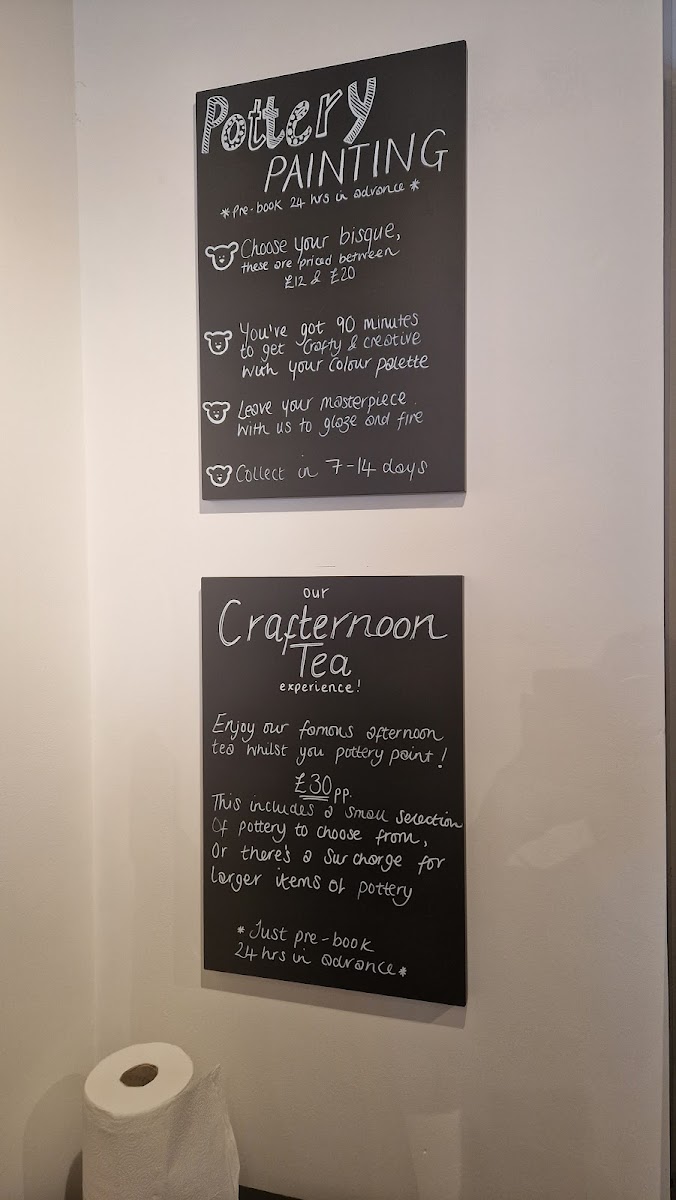 Pottery
PAINTING
*Pre-book 24 hrs in advance*
Choose your bisque,
these are priced between
£12 & £20
You've got 90 minutes
to get crafty & creative
with your colour palette
Leave your masterpiece
with us to glaze and fire
Collect in 7-14 days
our
Crafternoon
Tea
experience!
Enjoy our famous afternoon
tea whilst you pottery paint!
£30pp.
This includes a small selection
Of pottery to choose from,
Or there's a Sur charge for
larger items of pottery
*Just pre-book
24 hrs in advance*